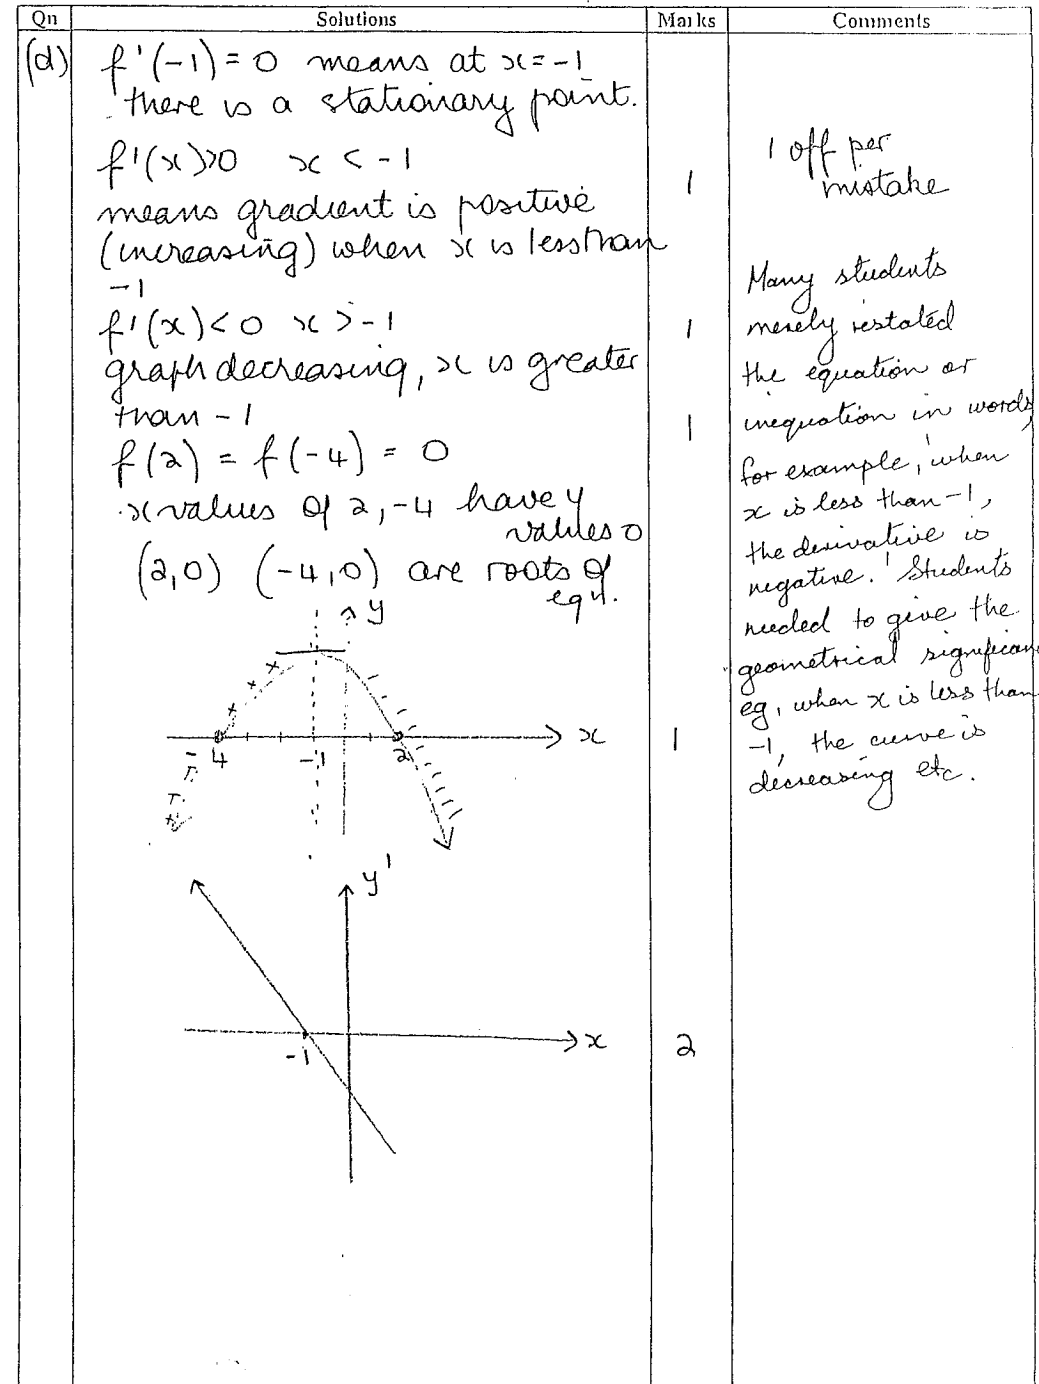 Qn Solutions Marks Comments
(d) f'(-1) = 0 means at x = -1
there is a stationary point.
f'(x)>0 x < -1
means gradient is positive
(increasing) when x is less than
-1
f'(x) < 0 x > -1
graph decreasing, x is greater
than -1
f(2) = f(-4) = 0
x values of 2, -4 have y
values 0
(2,0) (-4,0) are roots of
eqn.
y
-4 -1 2 x
y'
-1 x
1
1
1
1
2
1 off per
mistake
Many students
merely restated
the equation or
inequation in words,
for example, 'when
x is less than -1,
the derivative is
negative.' Students
needed to give the
geometrical significan
eg, when x is less than
-1, the curve is
decreasing etc.